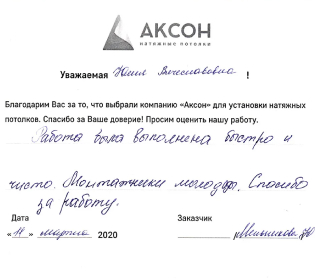 АКСОН
натяжные потолки
Уважаемая Юлия Вячеславовна !
Благодарим Вас за то, что выбрали компанию «Аксон» для установки натяжных
потолков. Спасибо за Ваше доверие! Просим оценить нашу работу.
Работа была выполнена быстро и
чисто. Монтажники молодцы. Спасибо
за работу.
Дата Заказчик
«11» марта 2020